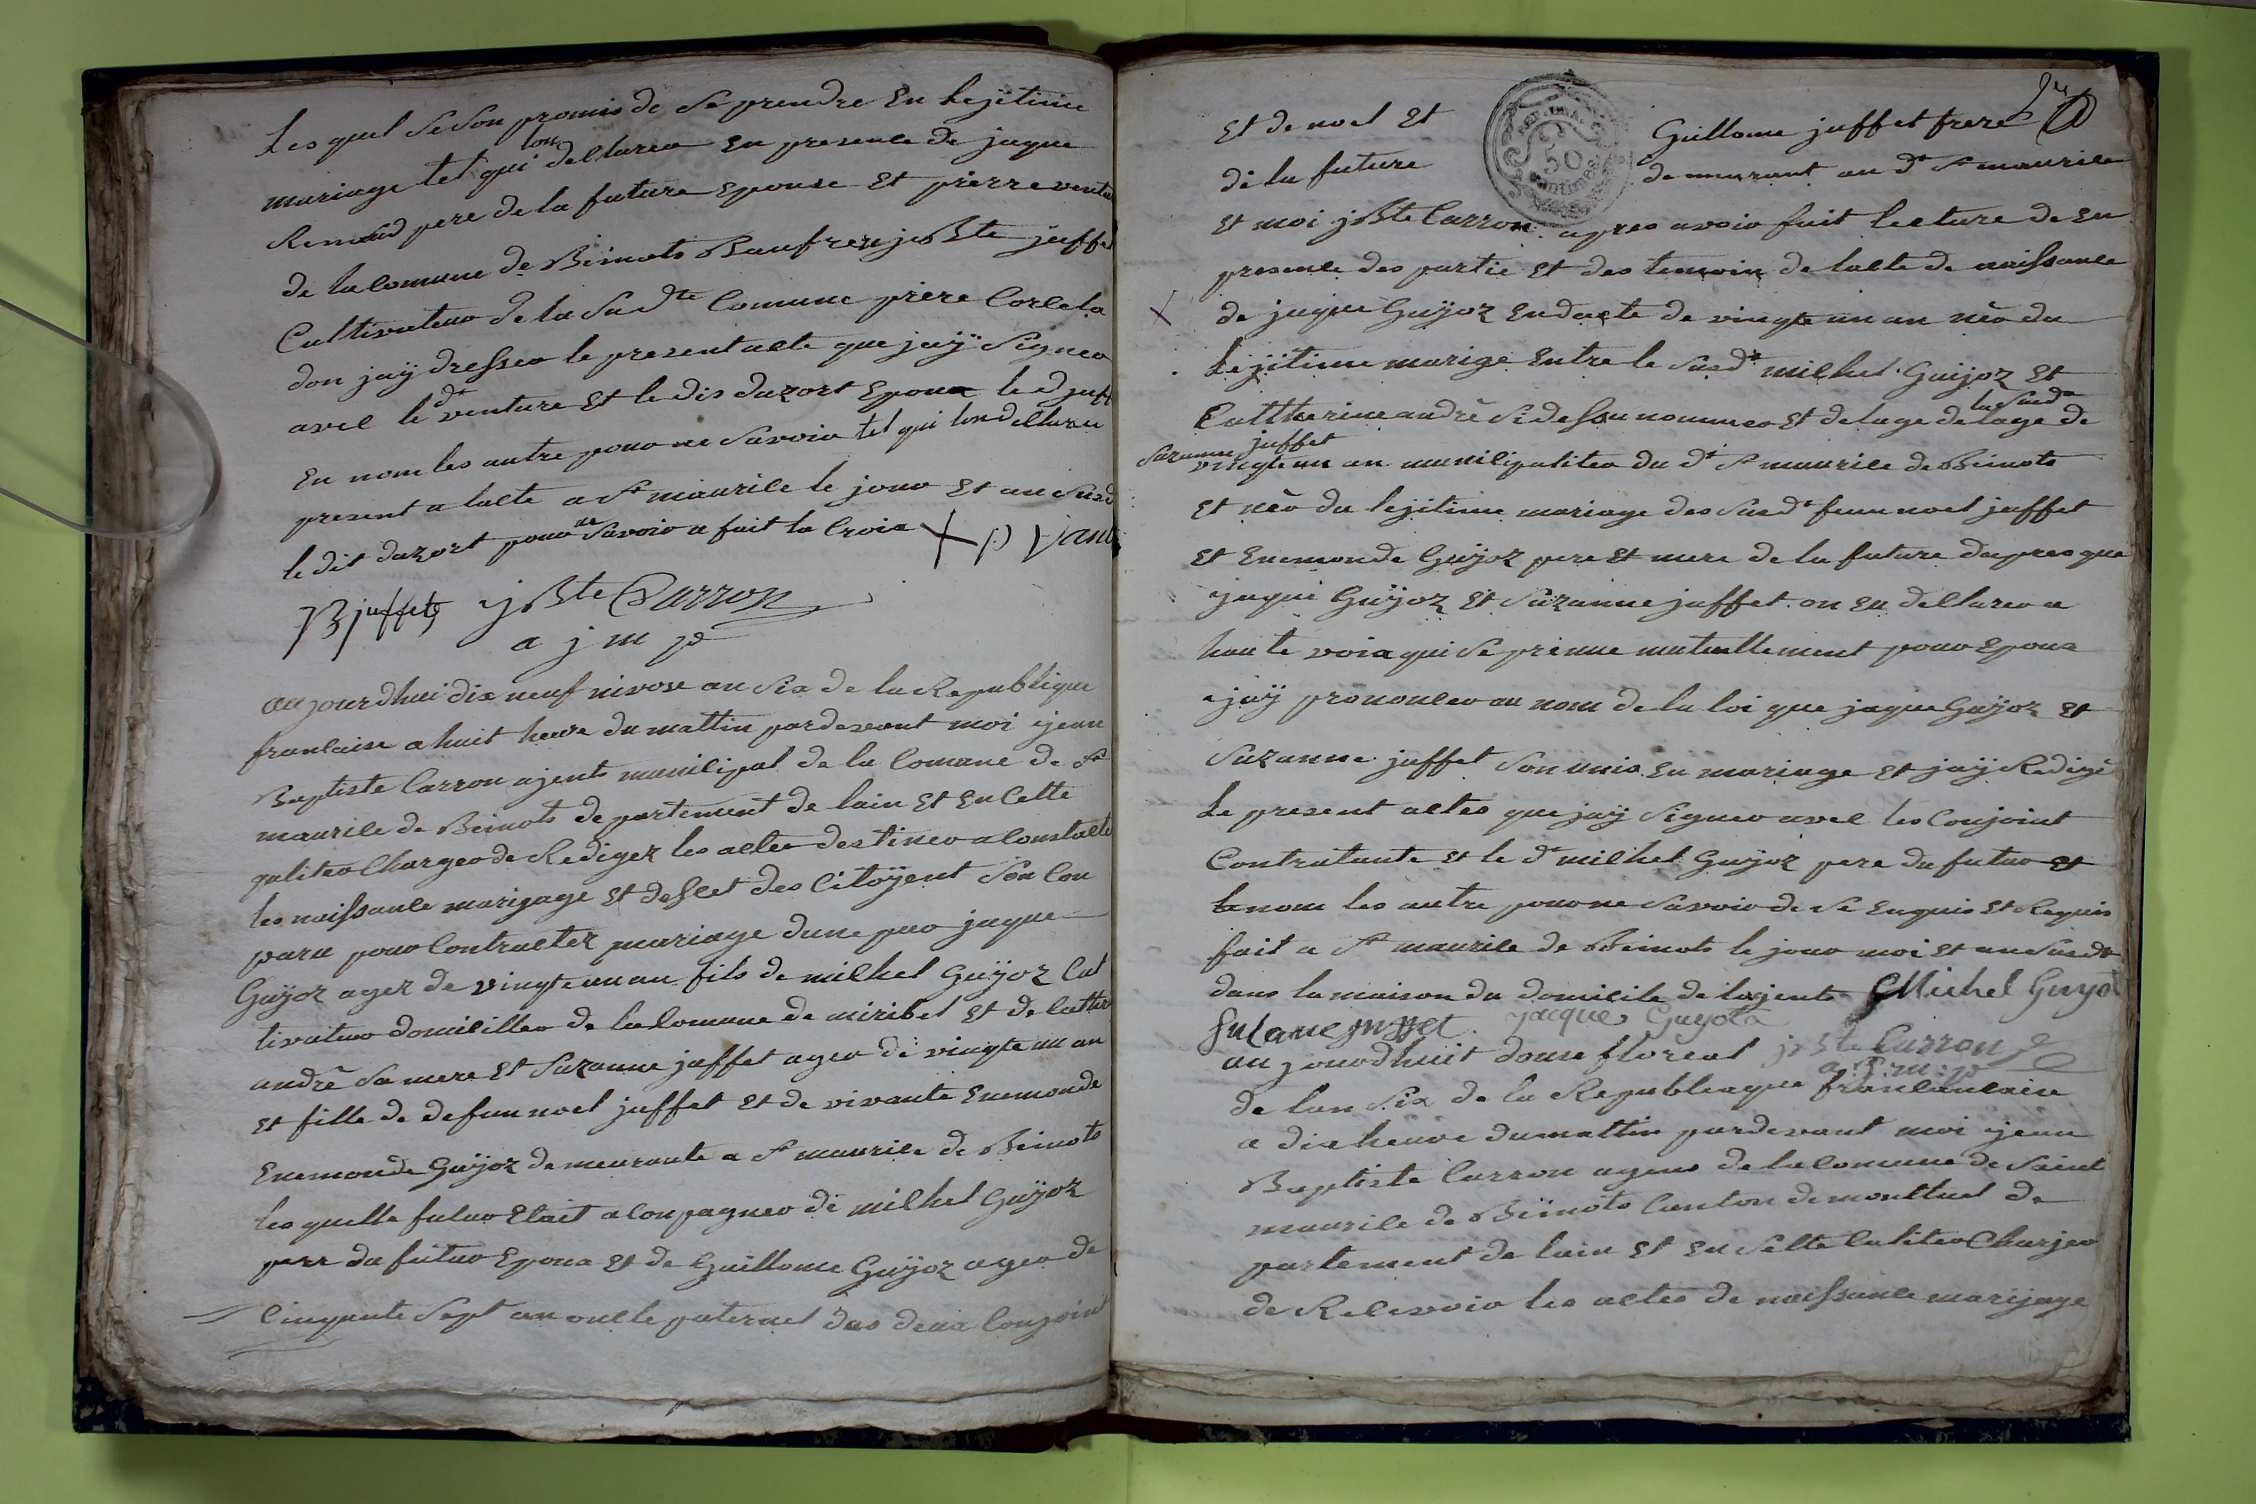 Les quel se son promis de se prendre En Lejitime
mariage tel qui lon declarea En presence de jaque
Remand pere de la future Epouse Et pierre ventu
de la Comune de Beinots Baufrere j Bte juffet
Cultivateur de la Sudte Comune priere Cortela
don jaÿ dressea le present acte que jaÿ Signea
avec le dt venture Et le dis duzort Epoux le d juff
En nom les autre pour ne savoir tel qui lon declarea
present a lacte a St maurile le jour Et an Susd
le dit duzort pour ne Savoir a fait la Croix + p vant
JB juffet j Bte Carron
a j m p
aujourdhui dix neuf nivose an Six de la Republique
francaise a huit heure du mattin pardevant moi jean
Baptiste Carron ajents municipal de la Comune de St
maurile de Beinots departement de lain Et En Cette
qalitea Chargea de Rediger les actes destinea a Constate
les naissance marigage Et desset des Citoÿent Son Con
paru pour Contracter mariage dune par jaque
Guÿoz ager de vingte un an fils de milhel Guÿoz Cul
tivateur domicillea de la Comune de miribel Et de Catther
andrê Sa mere Et Suzanne juffet agea de vingte un an
Et fille de defun noel juffet Et de vivante Enemonde
Enemonde Guÿoz demeurante a St maurile de Beinots
les quelle futur Etait aConpagnea de milhel Guÿoz
pere du futur Epoux Et de Guillome Guÿoz agea de
Cinquante Sept an oncle paternel das deux Conjoint
Et de noel Et Guillome juffet frere
de la future demeurant au dt St maurile
50 Centimes
Et moi j Bte Carron apres avoir fait lecture de En
presence des partie Et des temoin de lacte de naissance
de jaque Guÿoz En dacte de vingte un an nêa du
Lejitime marige Entre le Susdt milhel Guÿoz Et
Cattherine andrê Sidessu nommea Et de lage de lage de la Susde
Suzanne juffet
vingte un an municipalitea du dt St maurile de Beinots
Et nêa du lejitime mariage des Susdt feun noel juffet
Et Enemonde Guÿoz pere Et mere de la future dapres que
jaque Guÿoz Et Suzanne juffet on En declarea a
haute voix qui Se prenne mutuellement pour Epoux
jaÿ prononcea au nom de la loi que jaque Guÿoz Et
Suzanne juffet Son unis En mariage Et jaÿ Redigê
Le present actes que jaÿ Signea avec les Conjoint
Contratante Et le dt milhel Guÿoz pere du futur Et
Le nom les autre pour ne Savoir de Se Enquis Et Requis
fait a St maurile de Beinots le jour moi Et an Susdt
dans la maison du domicile de lajents Michel Guyot
Susanne juffet jacques Guyot
aujourdhuit douse floreal j Bte Carron
a j: m: p
de lan Six de la Republeaque francaucaise
a dix heure du mattin pardevant moi jean
Baptiste Carron agens de la Comune de Saint
maurile de Beinots Canton de montluel de
partement de lain Et En Sette Calitea Charjea
de Recevoir les actes de naissance marijage